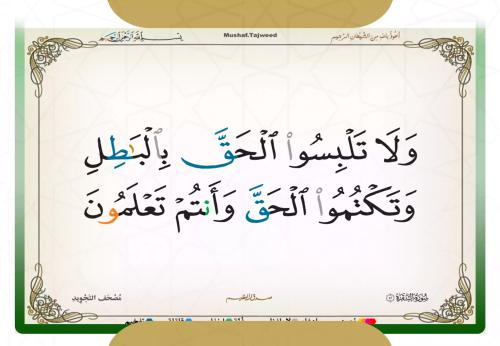 أعوذ بالله من الشيطان الرجيم
Mushaf.Tajweed
بسم الله الرحمن الرحيم
وَلَا تَلْبِسُوا۟ الْحَقَّ بِالْبَٰطِلِ
وَتَكْتُمُوا۟ الْحَقَّ وَأَنتُمْ تَعْلَمُونَ
سُورَةُ البَقَرَة
صدق الله العظيم
مُصْحَف التجْوِيد